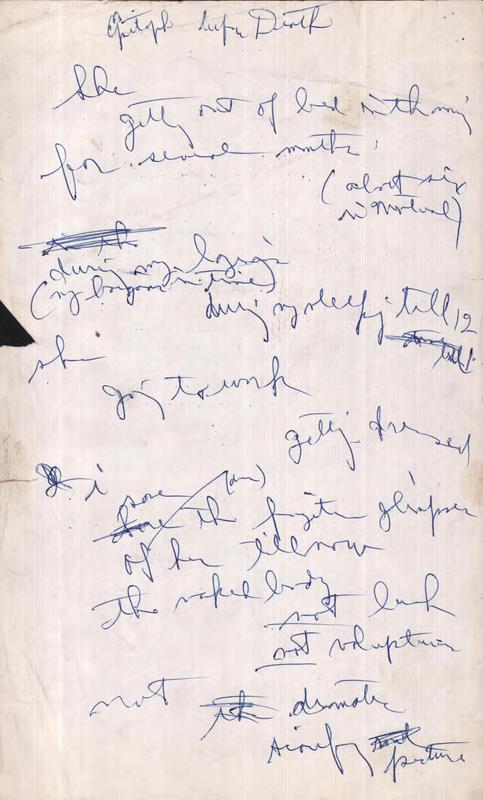 Epitaph before Death
She
getting out of bed in the morning
for several months,
(about six
in Montreal)
during my
(my in time)
during my sleeping till 12
she
going to work
getting dressed
i
(and)
the fugitive glimpses
of her till now
the naked body
not lush
not voluptuous
not dramatic
simply
picture